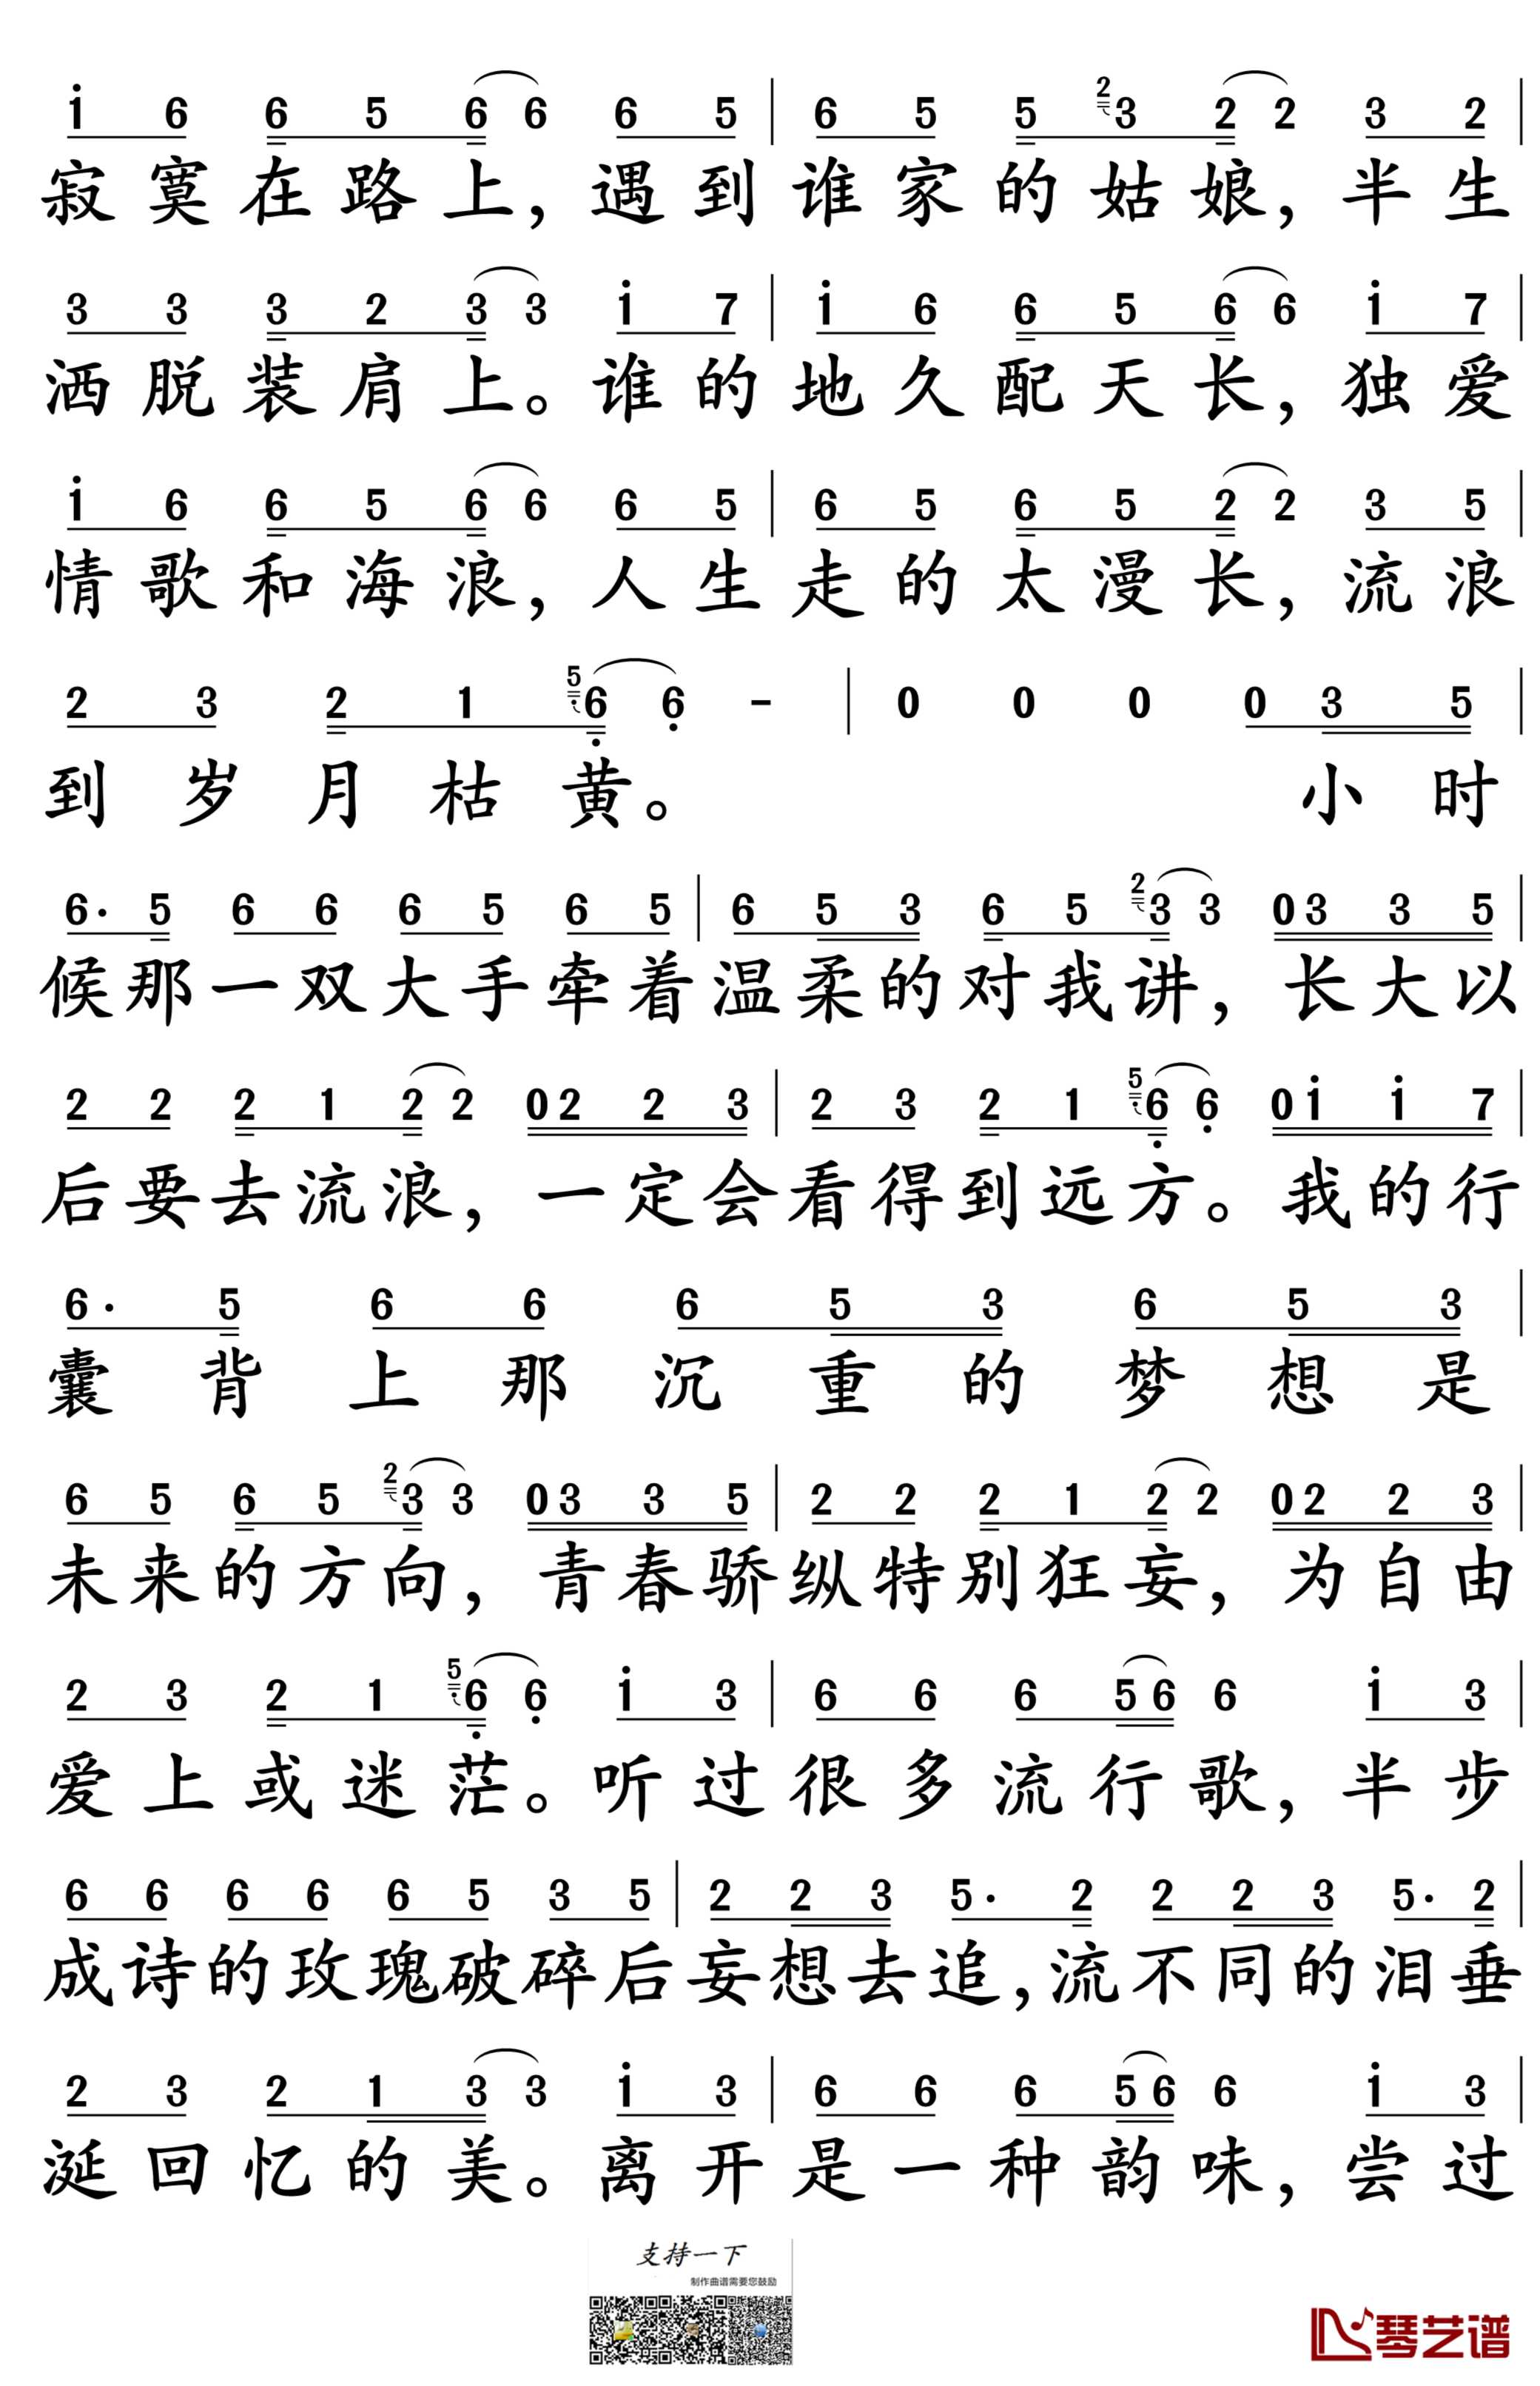 i 6 6 5 6 6 6 5 | 6 5 5 2 3 2 2 3 2 |
寂寞在路上，遇到谁家的姑娘，半生
3 3 3 2 3 3 i 7 | i 6 6 5 6 6 i 7 |
洒脱装肩上。谁的地久配天长，独爱
i 6 6 5 6 6 6 5 | 6 5 6 5 2 2 3 5 |
情歌和海浪，人生走的太漫长，流浪
2 3 2 1 5 6 6 - | 0 0 0 0 3 5 |
到岁月枯黄。小时
6· 5 6 6 6 5 6 5 | 6 5 3 6 5 2 3 3 0 3 3 5 |
候那一双大手牵着温柔的对我讲，长大以
2 2 2 1 2 2 0 2 2 3 | 2 3 2 1 5 6 6 0 i i 7 |
后要去流浪，一定会看得到远方。我的行
6· 5 6 6 6 5 3 6 5 3 |
囊背上那沉重的梦想是
6 5 6 5 2 3 3 0 3 3 5 | 2 2 2 1 2 2 0 2 2 3 |
未来的方向，青春骄纵特别狂妄，为自由
2 3 2 1 5 6 6 i 3 | 6 6 6 5 6 6 i 3 |
爱上或迷茫。听过很多流行歌，半步
6 6 6 6 6 5 3 5 | 2 2 3 5· 2 2 2 3 5· 2 |
成诗的玫瑰破碎后妄想去追，流不同的泪垂
2 3 2 1 3 3 i 3 | 6 6 6 5 6 6 i 3 |
涎回忆的美。离开是一种韵味，尝过
支持一下
制作曲谱需要您鼓励
琴艺谱